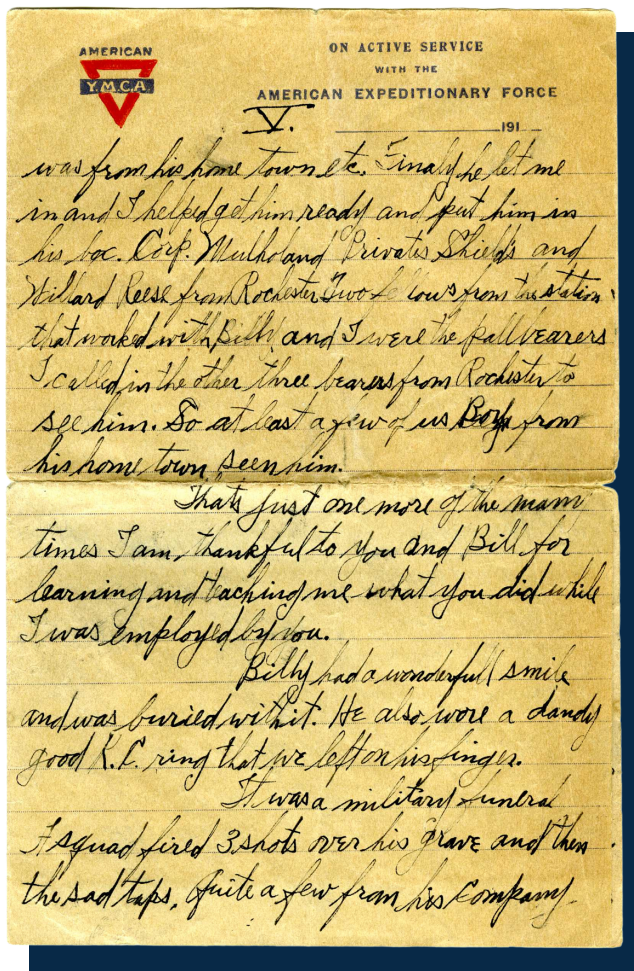 AMERICAN
Y.M.C.A.
ON ACTIVE SERVICE
WITH THE
AMERICAN EXPEDITIONARY FORCE
V.
191
was from his home town etc. Finaly he let me
in and I helped get him ready and put him in
his box. Corp. Mulholand Privates Shields and
Willard Reese from Rochester Two fellows from the station
that worked with Billy and I were the pallbearers
I called in the other three bearers from Rochester to
see him. So at least a few of us Boys from
his home town seen him.
Thats just one more of the many
times I am thankful to you and Bill for
learning and teaching me what you did while
I was employed by you.
Billy had a wonderfull smile
and was buried with it. He also wore a dandy
good K.C. ring that we left on his finger.
It was a military funeral
A squad fired 3 shots over his grave and then
the sad taps. Quite a few from his Company